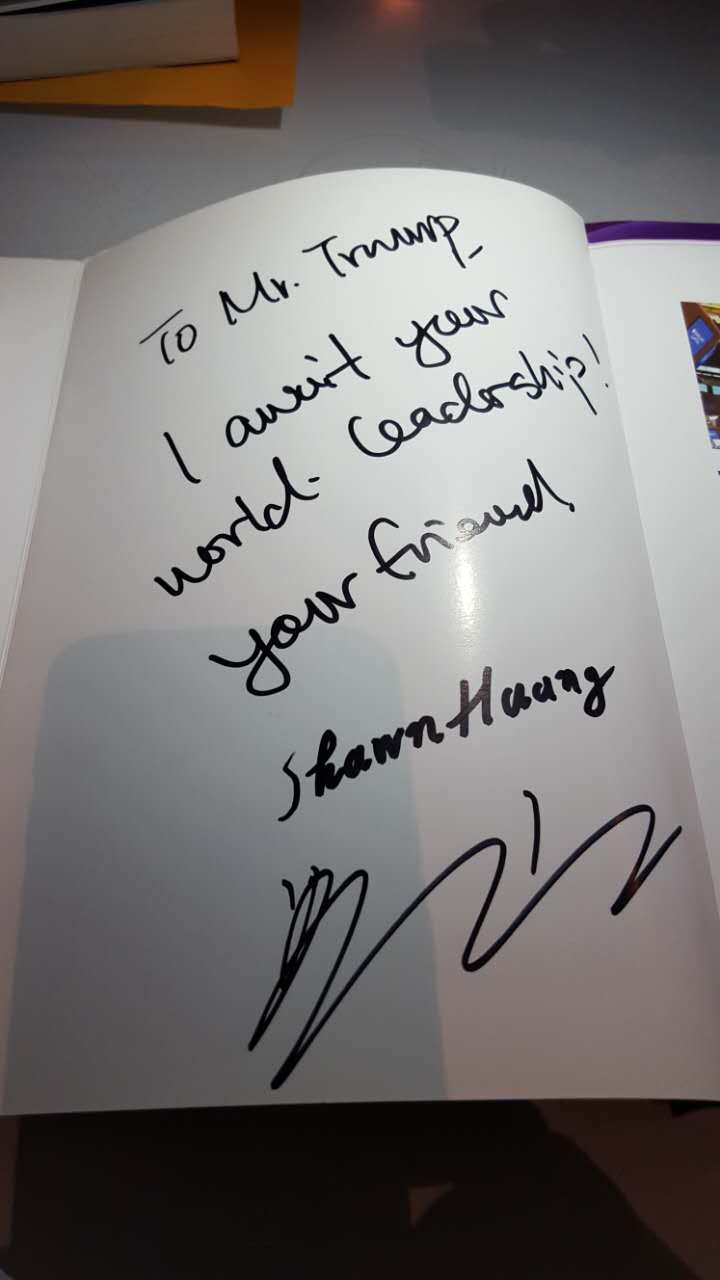 To Mr. Trump
I await your
world leadership!
your friend
Shawn Huang